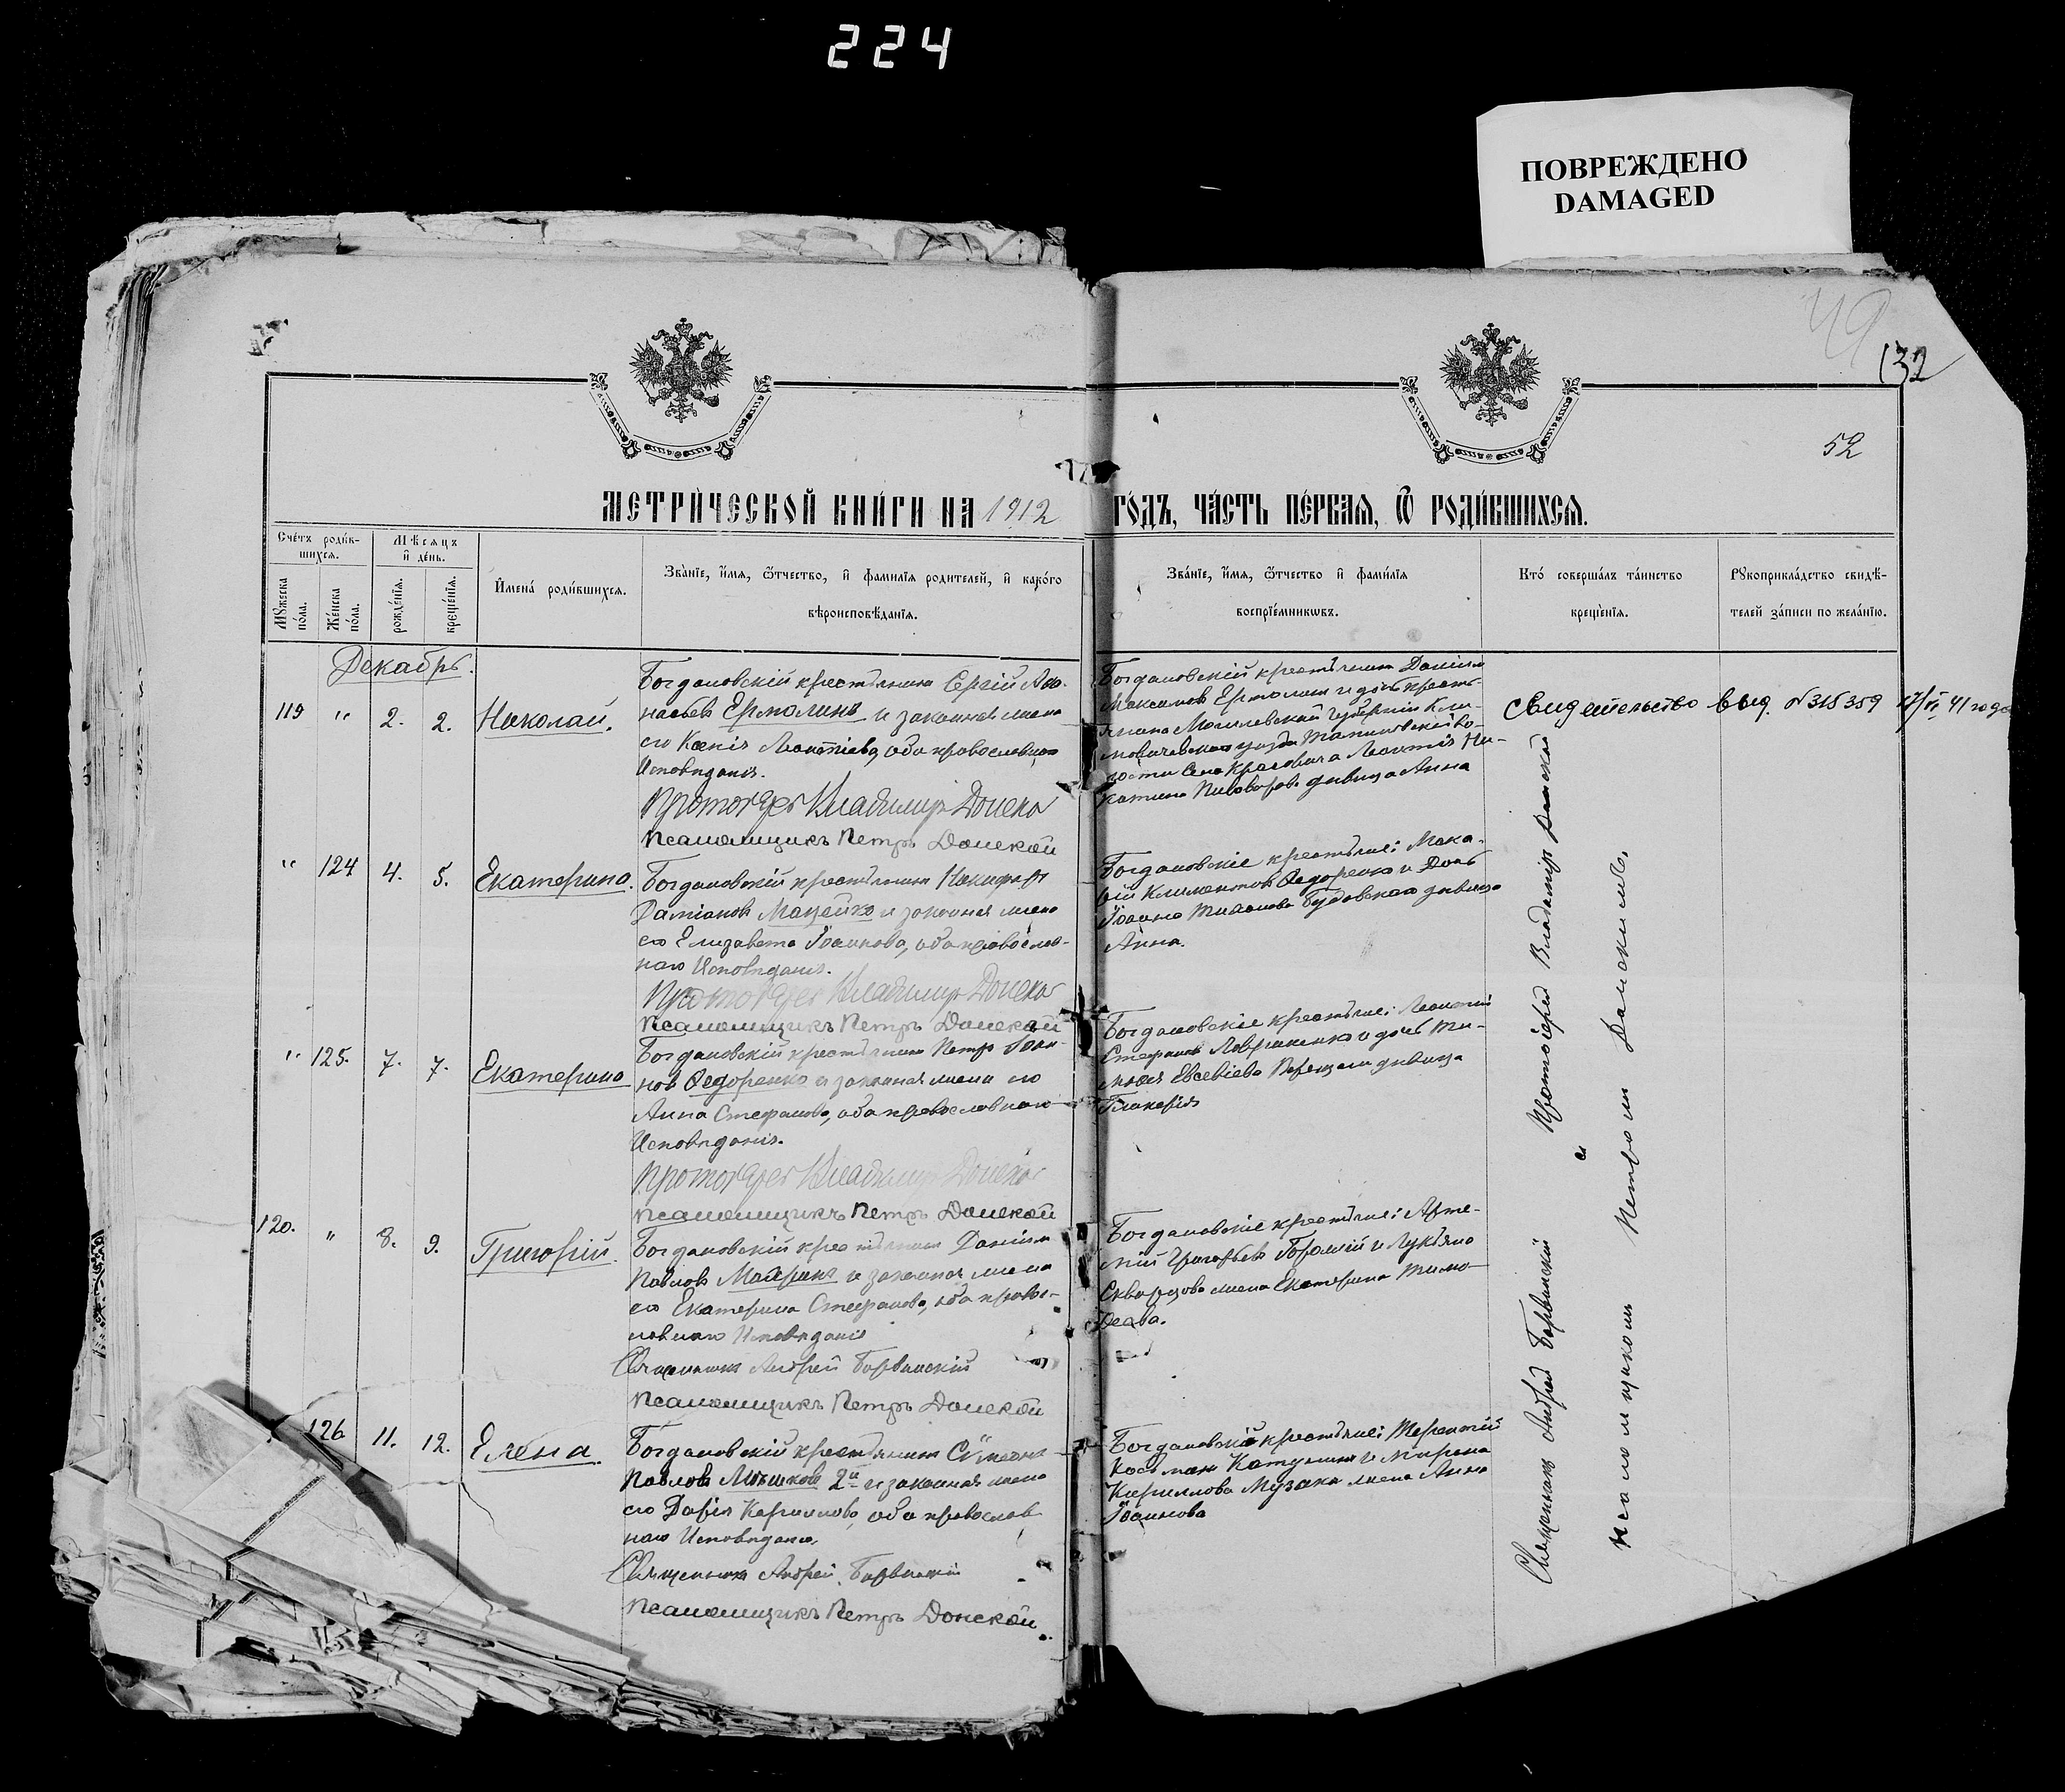 224
ПОВРЕЖДЕНО
DAMAGED
49
132
52
МЕТРИЧЕСКОЙ КНИГИ НА 1912 ГОДЪ, ЧАСТЬ ПЕРВАЯ, Ѿ РОДИВШИХСЯ.
Счетъ родив-
шихся.
Мѣсяцъ
и день.
Мужеска
пола.
Женска
пола.
рожденія.
крещенія.
Имена родившихся.
Званіе, имя, ѿтчество, и фамилія родителей, и какого
вѣроисповѣданія.
Званіе, имя, ѿтчество и фамилія
воспріемниковъ.
Кто совершалъ таинство
крещенія.
Рукоприкладство свидѣ-
телей записи по желанію.
Декабрь.
119 " 2. 2. Николай.
Богдановскій крестьянинъ Сергій Аѳа-
насьевъ Ермолинъ и законная жена
его Ксенія Леонтіева, оба православнаго
Исповѣданія.
Протоіерей Владимиръ Донской
Псаломщикъ Петръ Донской
Богдановскій крестьянинъ Даніилъ
Максимовъ Ермолинъ и дочь кресть-
янина Могилевской губерніи Кли-
мовичевскаго уѣзда
дѣвица Анна
Свидетельство выд. № 315359 17/VI 41 года
" 124 4. 5. Екатерина.
Богдановскій крестьянинъ Никифоръ
Даміановъ Мацейко и законная жена
его Елизавета Іоаннова, оба православ-
наго Исповѣданія.
Протоіерей Владимиръ Донской
Псаломщикъ Петръ Донской
Богдановскіе крестьяне: Мака-
рій Климентовъ Ѳедоренко и Дочь
Іоанна Тихонова Будовская дѣвица
Анна.
" 125. 7. 7. Екатерина
Богдановскій крестьянинъ Петръ Іоан-
новъ Ѳедоренко и законная жена его
Анна Стефанова, оба православнаго
Исповѣданія.
Протоіерей Владимиръ Донской
Псаломщикъ Петръ Донской
Богдановскіе крестьяне: Леонтій
Стефановъ Лавриненко и дочь Ти-
моѳея Евсевіева дѣвица
Гликерія
120. " 8. 9. Григорій.
Богдановскій крестьянинъ Даніилъ
Павловъ и законная жена
его Екатерина Стефанова, оба правос-
лавнаго Исповѣданія
Священникъ Андрей Барвинскій
Псаломщикъ Петръ Донской
Богдановскіе крестьяне: Арте-
мій Григорьевъ и Лукьяна
Скворцова жена Екатерина Тимо-
ѳеева.
126 11. 12. Елена.
Богдановскій крестьянинъ Сѵмеонъ
Павловъ Мышковъ 2й и законная жена
его Дарія Кириллова, оба православ-
наго Исповѣданія.
Священникъ Андрей Барвинскій
Псаломщикъ Петръ Донской.
Богдановскіе крестьяне: Терентій
Косьминъ Катунинъ и Мирона
Кириллова Музыки жена Анна
Іоаннова
Протоіерей Владимиръ Донской
и
Священникъ Андрей Барвинскій
Псаломщикомъ Петромъ Донскимъ.